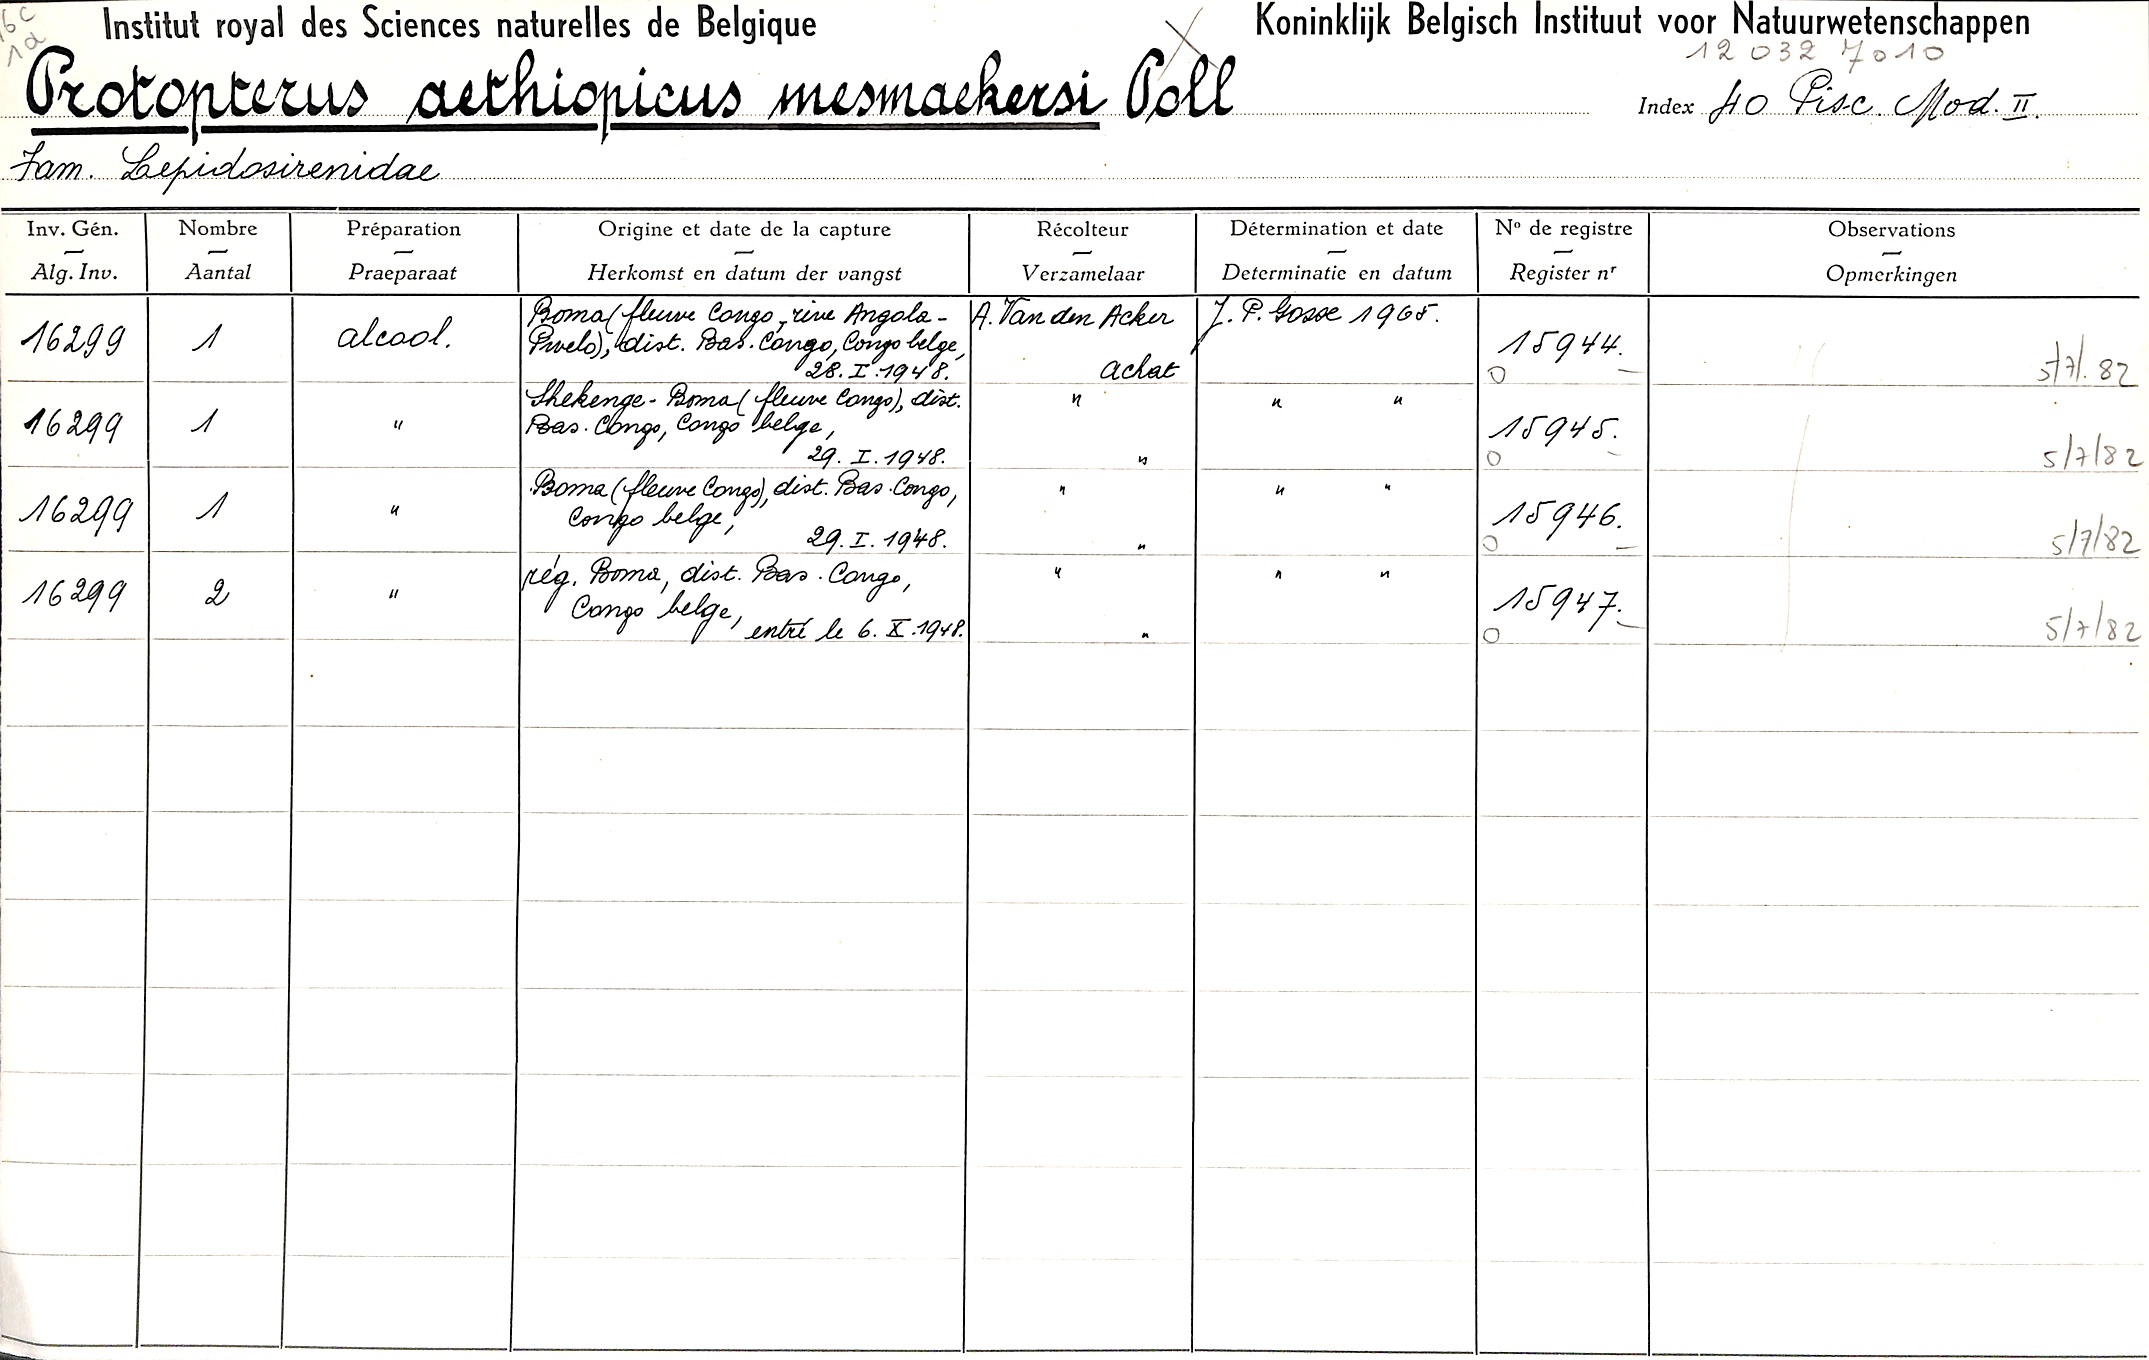 16C
1a
Institut royal des Sciences naturelles de Belgique
Koninklijk Belgisch Instituut voor Natuurwetenschappen
12 032 7010
Protopterus aethiopicus mesmaekersi Poll
Index 40 Pisc. Mod. II.
Fam. Lepidosirenidae
Inv. Gén. Nombre Préparation Origine et date de la capture Récolteur Détermination et date Nº de registre Observations
Alg. Inv. Aantal Praeparaat Herkomst en datum der vangst Verzamelaar Determinatie en datum Register nr Opmerkingen
16299 1 alcool.
Boma (fleuve Congo, rive Angola-
Pwelo), dist. Bas-Congo, Congo belge,
28.I.1948.
A. Van den Acker
Achat
J. P. Gosse 1965.
15944.
5/7/. 82
16299 1 "
Shekenge-Boma (fleuve Congo), dist.
Bas-Congo, Congo belge,
29.I.1948.
"
"
" "
15945.
5/7/82
16299 1 "
Boma (fleuve Congo), dist. Bas-Congo,
Congo belge,
29.I.1948.
"
"
" "
15946.
5/7/82
16299 2 "
rég. Boma, dist. Bas-Congo,
Congo belge,
entré le 6.X.1948.
"
"
" "
15947.
5/7/82